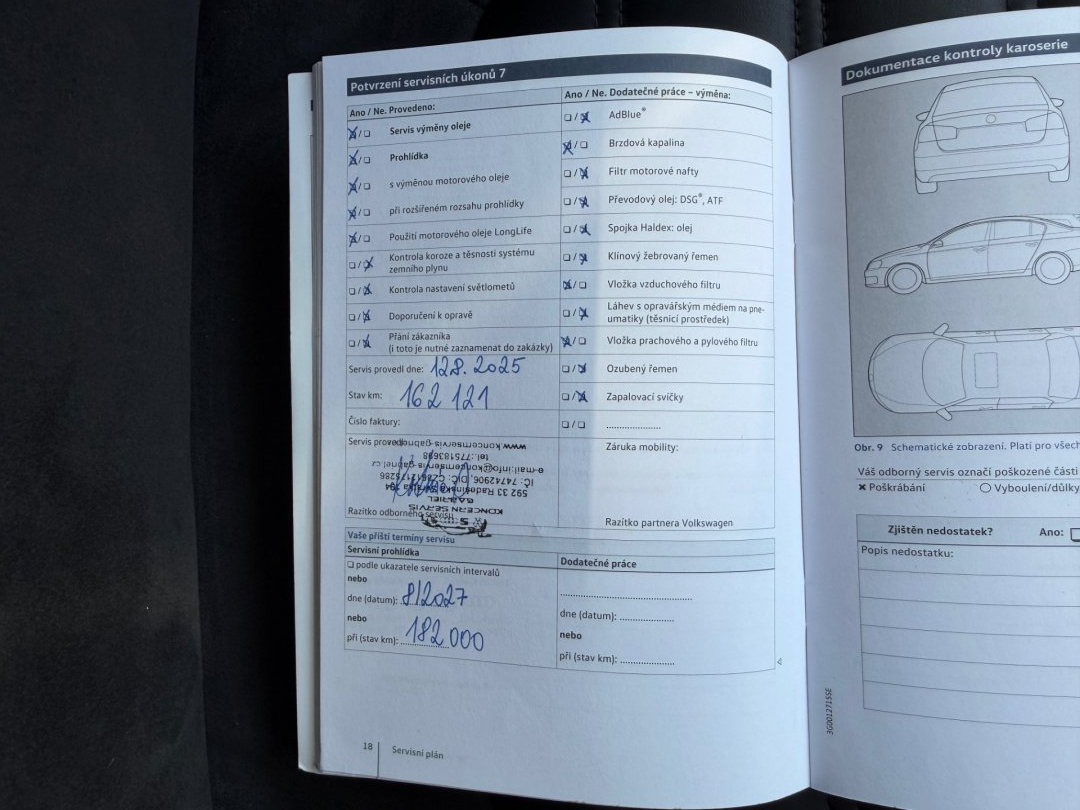 Potvrzení servisních úkonů 7
Ano / Ne. Provedeno:
☒/☐ Servis výměny oleje
☒/☐ Prohlídka
☒/☐ s výměnou motorového oleje
☒/☐ při rozšířeném rozsahu prohlídky
☒/☐ Použití motorového oleje LongLife
☐/☒ Kontrola koroze a těsnosti systému
zemního plynu
☐/☒ Kontrola nastavení světlometů
☐/☒ Doporučení k opravě
☐/☒ Přání zákazníka
(i toto je nutné zaznamenat do zakázky)
Servis provedl dne: 12.8. 2025
Stav km: 162 121
Číslo faktury:
Servis provedl:
www.koncernservis-gabriel.cz
tel.:775183698
e-mail:info@koncernservis-gabriel.cz
IČ: 74742906, DIČ:
592 33 Radešínská Svratka
GABRIEL
KONCERN SERVIS
Razítko odborného servisu
Ano / Ne. Dodatečné práce – výměna:
☐/☒ AdBlue®
☒/☐ Brzdová kapalina
☐/☒ Filtr motorové nafty
☐/☒ Převodový olej: DSG®, ATF
☐/☒ Spojka Haldex: olej
☐/☒ Klínový žebrovaný řemen
☒/☐ Vložka vzduchového filtru
☐/☒ Láhev s opravářským médiem na pne-
umatiky (těsnicí prostředek)
☒/☐ Vložka prachového a pylového filtru
☐/☒ Ozubený řemen
☐/☒ Zapalovací svíčky
☐/☐ .....................
Záruka mobility:
Razítko partnera Volkswagen
Vaše příští termíny servisu
Servisní prohlídka
☐ podle ukazatele servisních intervalů
nebo
dne (datum): 8/2027
nebo
při (stav km): 182 000
Dodatečné práce
..................................................
dne (datum): .....................
nebo
při (stav km): .....................
18 Servisní plán
Dokumentace kontroly karoserie
Obr. 9 Schematické zobrazení. Platí pro všech
Váš odborný servis označí poškozené části
✖ Poškrábání ○ Vyboulení/důlky
Zjištěn nedostatek? Ano: ☐
Popis nedostatku:
3G0012715SE